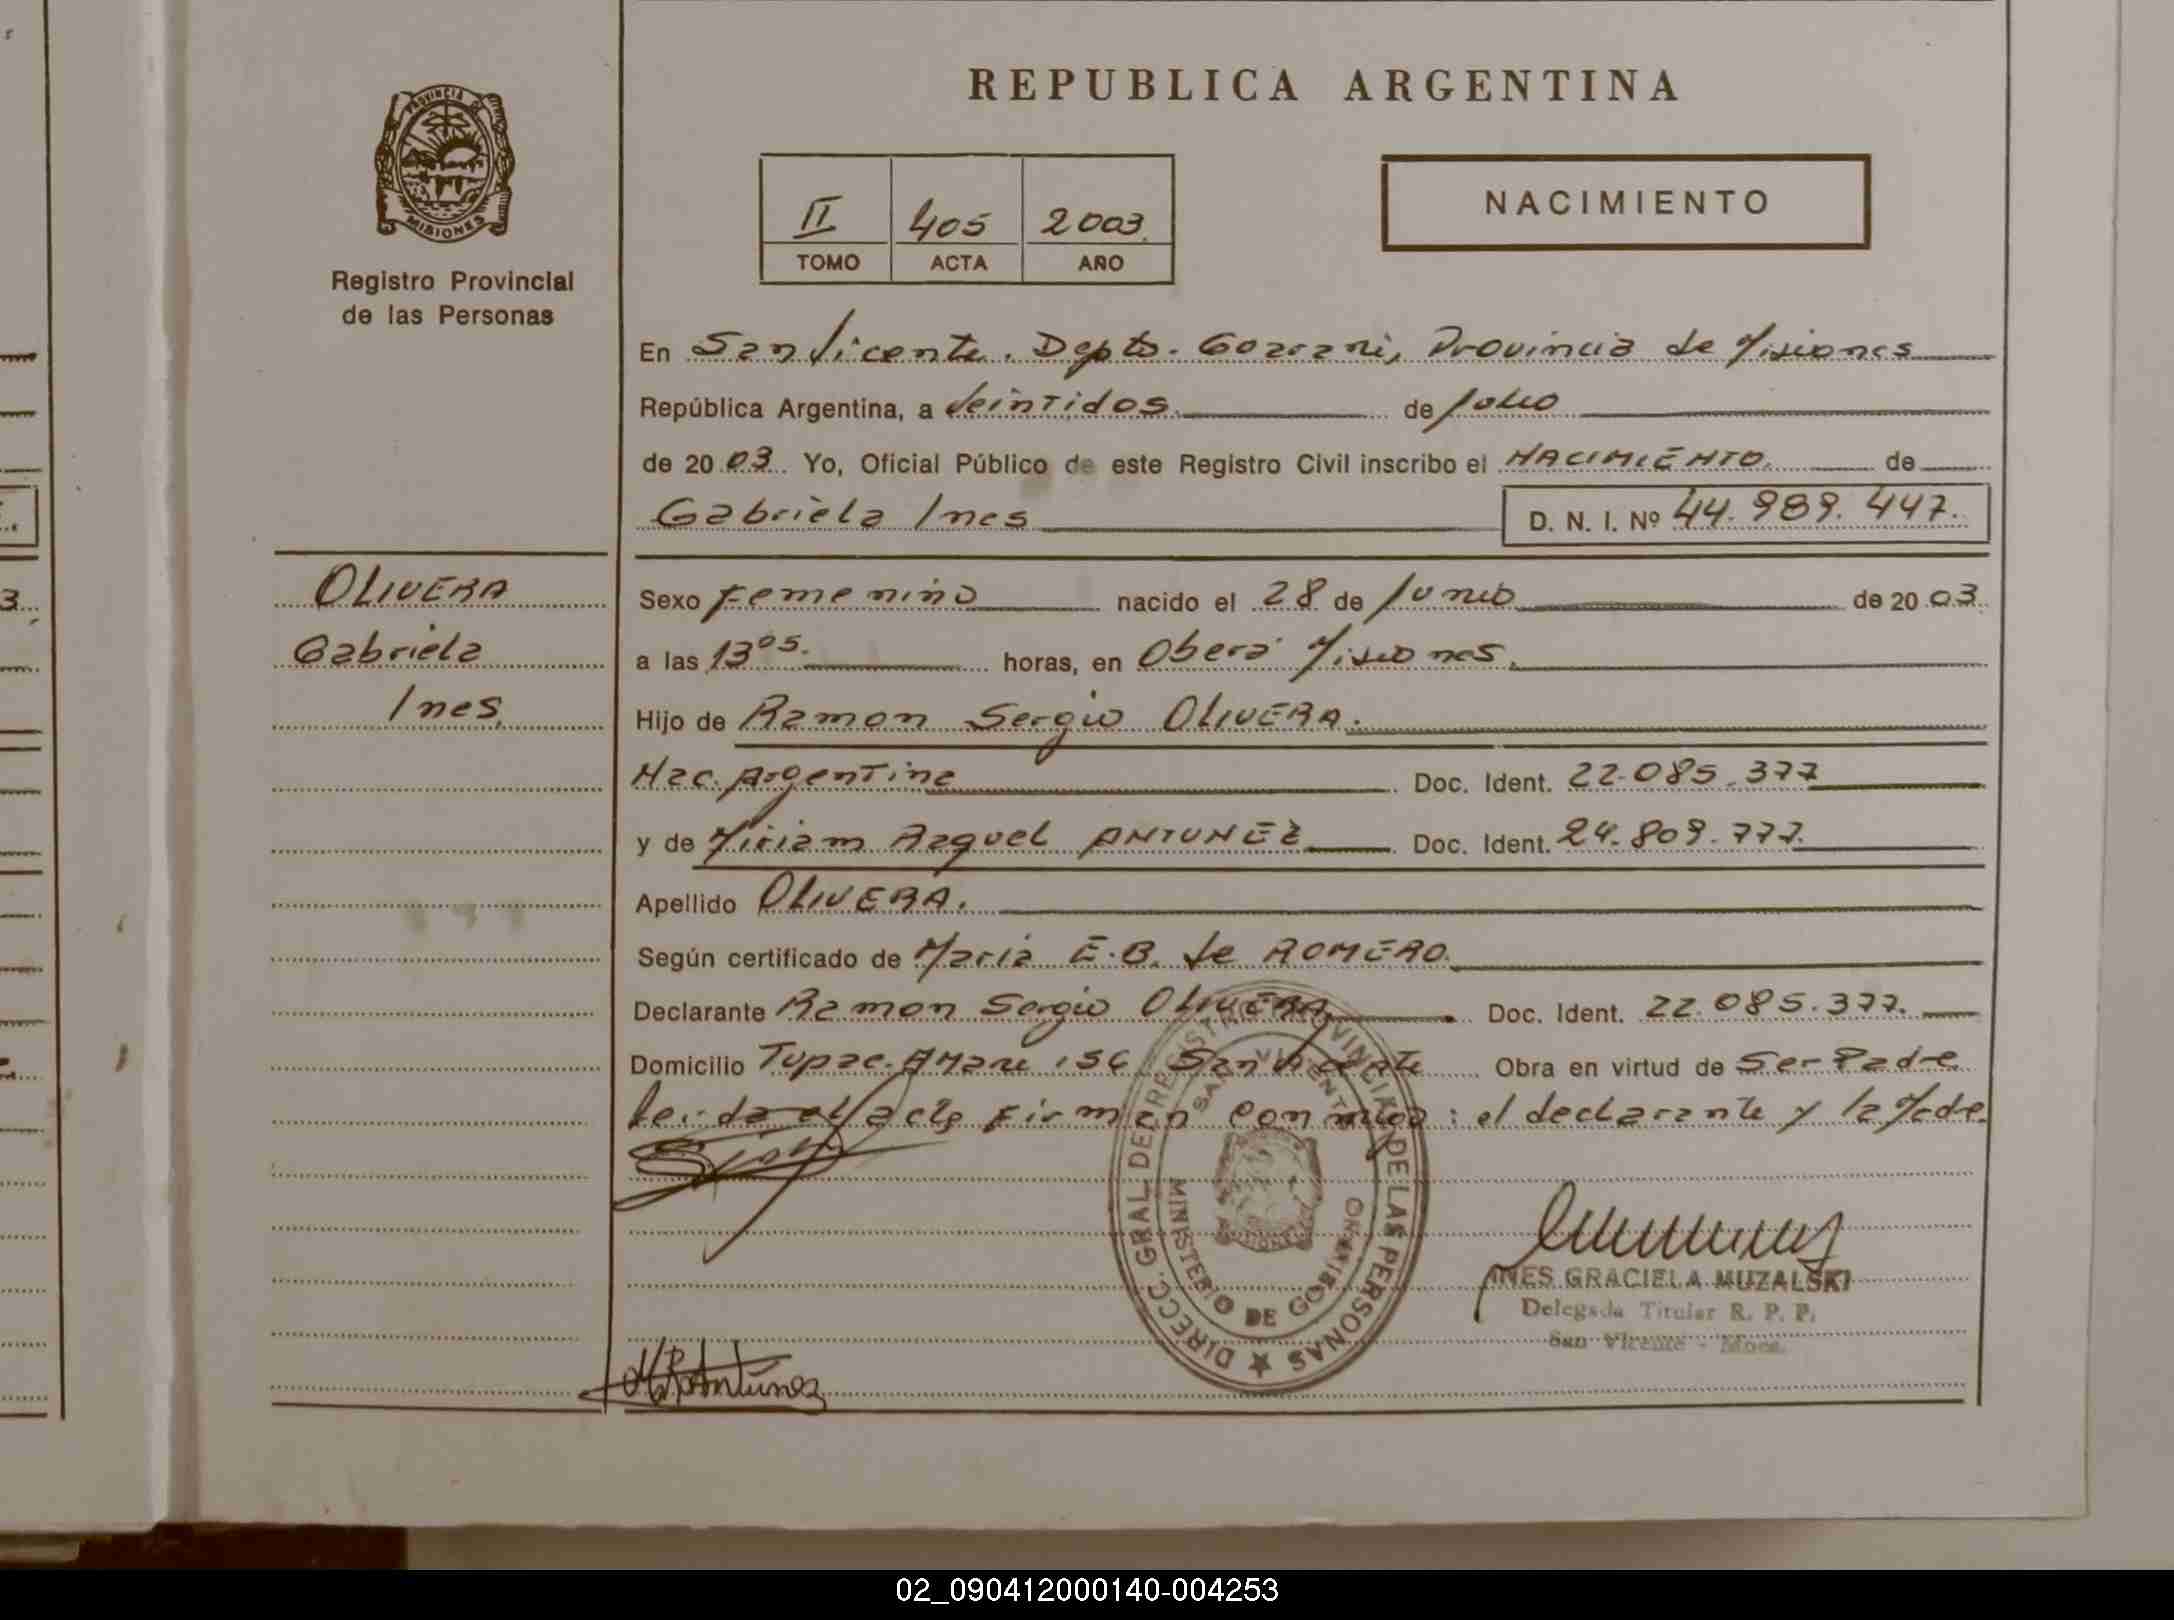 REPUBLICA ARGENTINA
PROVINCIA DE
MISIONES
Registro Provincial
de las Personas
II 405 2003.
TOMO ACTA AÑO
NACIMIENTO
En San Vicente. Depto. Guarani, Provincia de Misiones
República Argentina, a Veintidos. de Julio
de 20 03. Yo, Oficial Público de este Registro Civil inscribo el NACIMIENTO. de
Gabriela Ines
D. N. I. Nº 44.989.447.
OLIVERA
Gabriela
Ines.
Sexo Femenino nacido el 28 de Junio de 20 03.
a las 13 05. horas, en Oberá Misiones.
Hijo de Ramon Sergio OLIVERA.
Nac. Argentina Doc. Ident. 22.085.377
y de Miriam Raquel ANTUNEZ Doc. Ident. 24.809.777.
Apellido OLIVERA.
Según certificado de Maria E.B. de ROMERO.
Declarante Ramon Sergio OLIVERA. Doc. Ident. 22.085.377.
Domicilio Tupac Amaru 156 San Vicente Obra en virtud de Ser Padre
Leida el acta firman conmigo: el declarante y la Madre.
DIRECC. GRAL. DE REGISTRO PROVINCIAL DE LAS PERSONAS
SAN VICENTE
MINISTERIO DE GOBIERNO
MISIONES
INES GRACIELA MUZALSKI
Delegada Titular R. P. P.
San Vicente - Mnes.
MRAntúnez
02_090412000140-004253